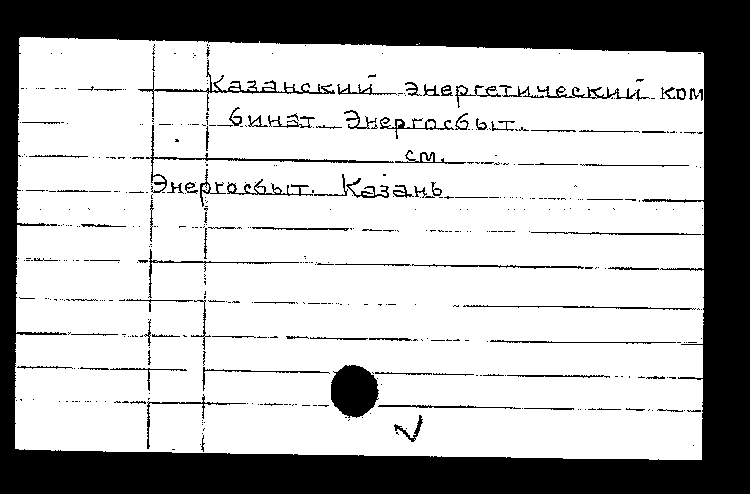 Казанский энергетический ком
бинат. Энергосбыт.
см.
Энергосбыт. Казань.